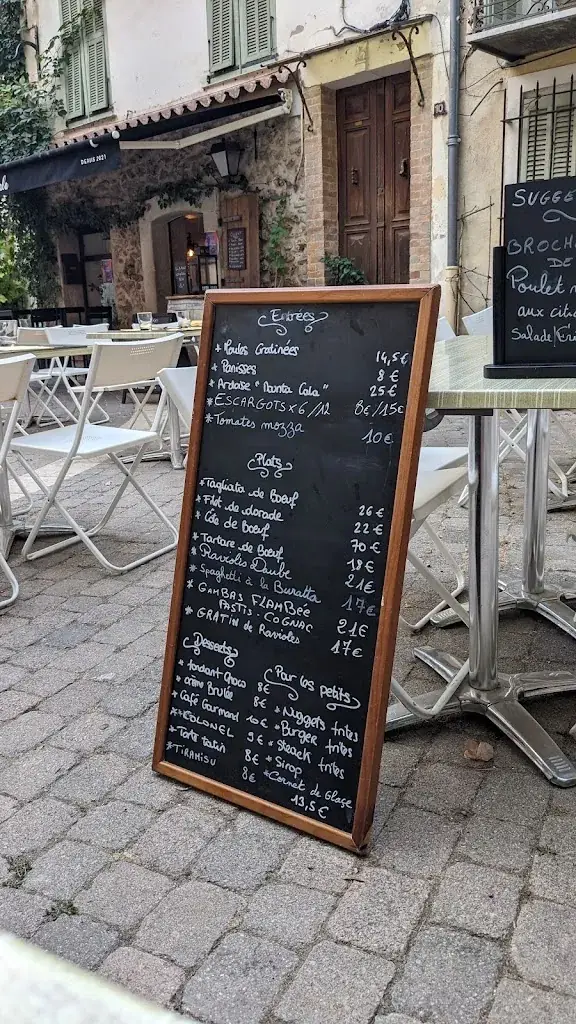 DEPUIS 2021
Entrées
* Moules Gratinées 14,5€
* Panisses 8€
* Ardoise "Nanta Cala" 25€
* ESCARGOTS x 6/12 8€/15€
* Tomates mozza 10€
Plats
* Tagliata de Bœuf 26€
* Filet de dorade 22€
* Côte de Bœuf 70€
* Tartare de Bœuf 18€
* Raviolis Daube 21€
* Spaghetti à la Buratta 17€
* GAMBAS FLAMBée
PASTIS-COGNAC 21€
* GRATIN de Ravioles 17€
Desserts
* fondant choco 8€
* crème Brulée 8€
* Café Gourmand 10€
* COLONEL 9€
* Tarte tatin 8€
* TIRAMISU 8€
Par les petits
* Nuggets frites
* Burger frites
* Steack frites
* Sirop
* Cornet de Glace
13,5€
SUGGE
BROCH
DE
Poulet
aux citr
Salade/